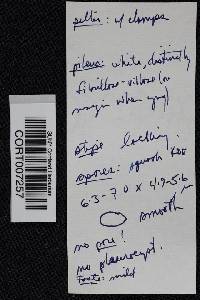 pellis: w/ clamps
pileus: white, distinctly
fibrillose-villose (on
margin when young)
stipe lacking.
spores: squash KOH
6.3-7.0 x 4.9-5.6
smooth
no
no pleurocyst.
Taste: mild
CORT007257